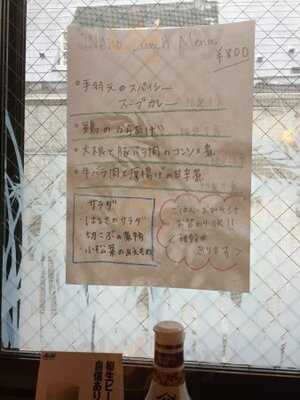 Lunch Menu
¥800
・手羽元のスパイシー
スープカレー
・鶏のから揚げ
・大根と豚バラ肉のコンソメ煮
・牛バラ肉と厚揚げの甘辛煮
サラダ
・はるさめサラダ
・切こぶの煮物
・小松菜のおひたし
ごはん・おみそしる
おかわりOK!!
＜雑穀米
あります＞
Asahi
樽生ビー
自信あり